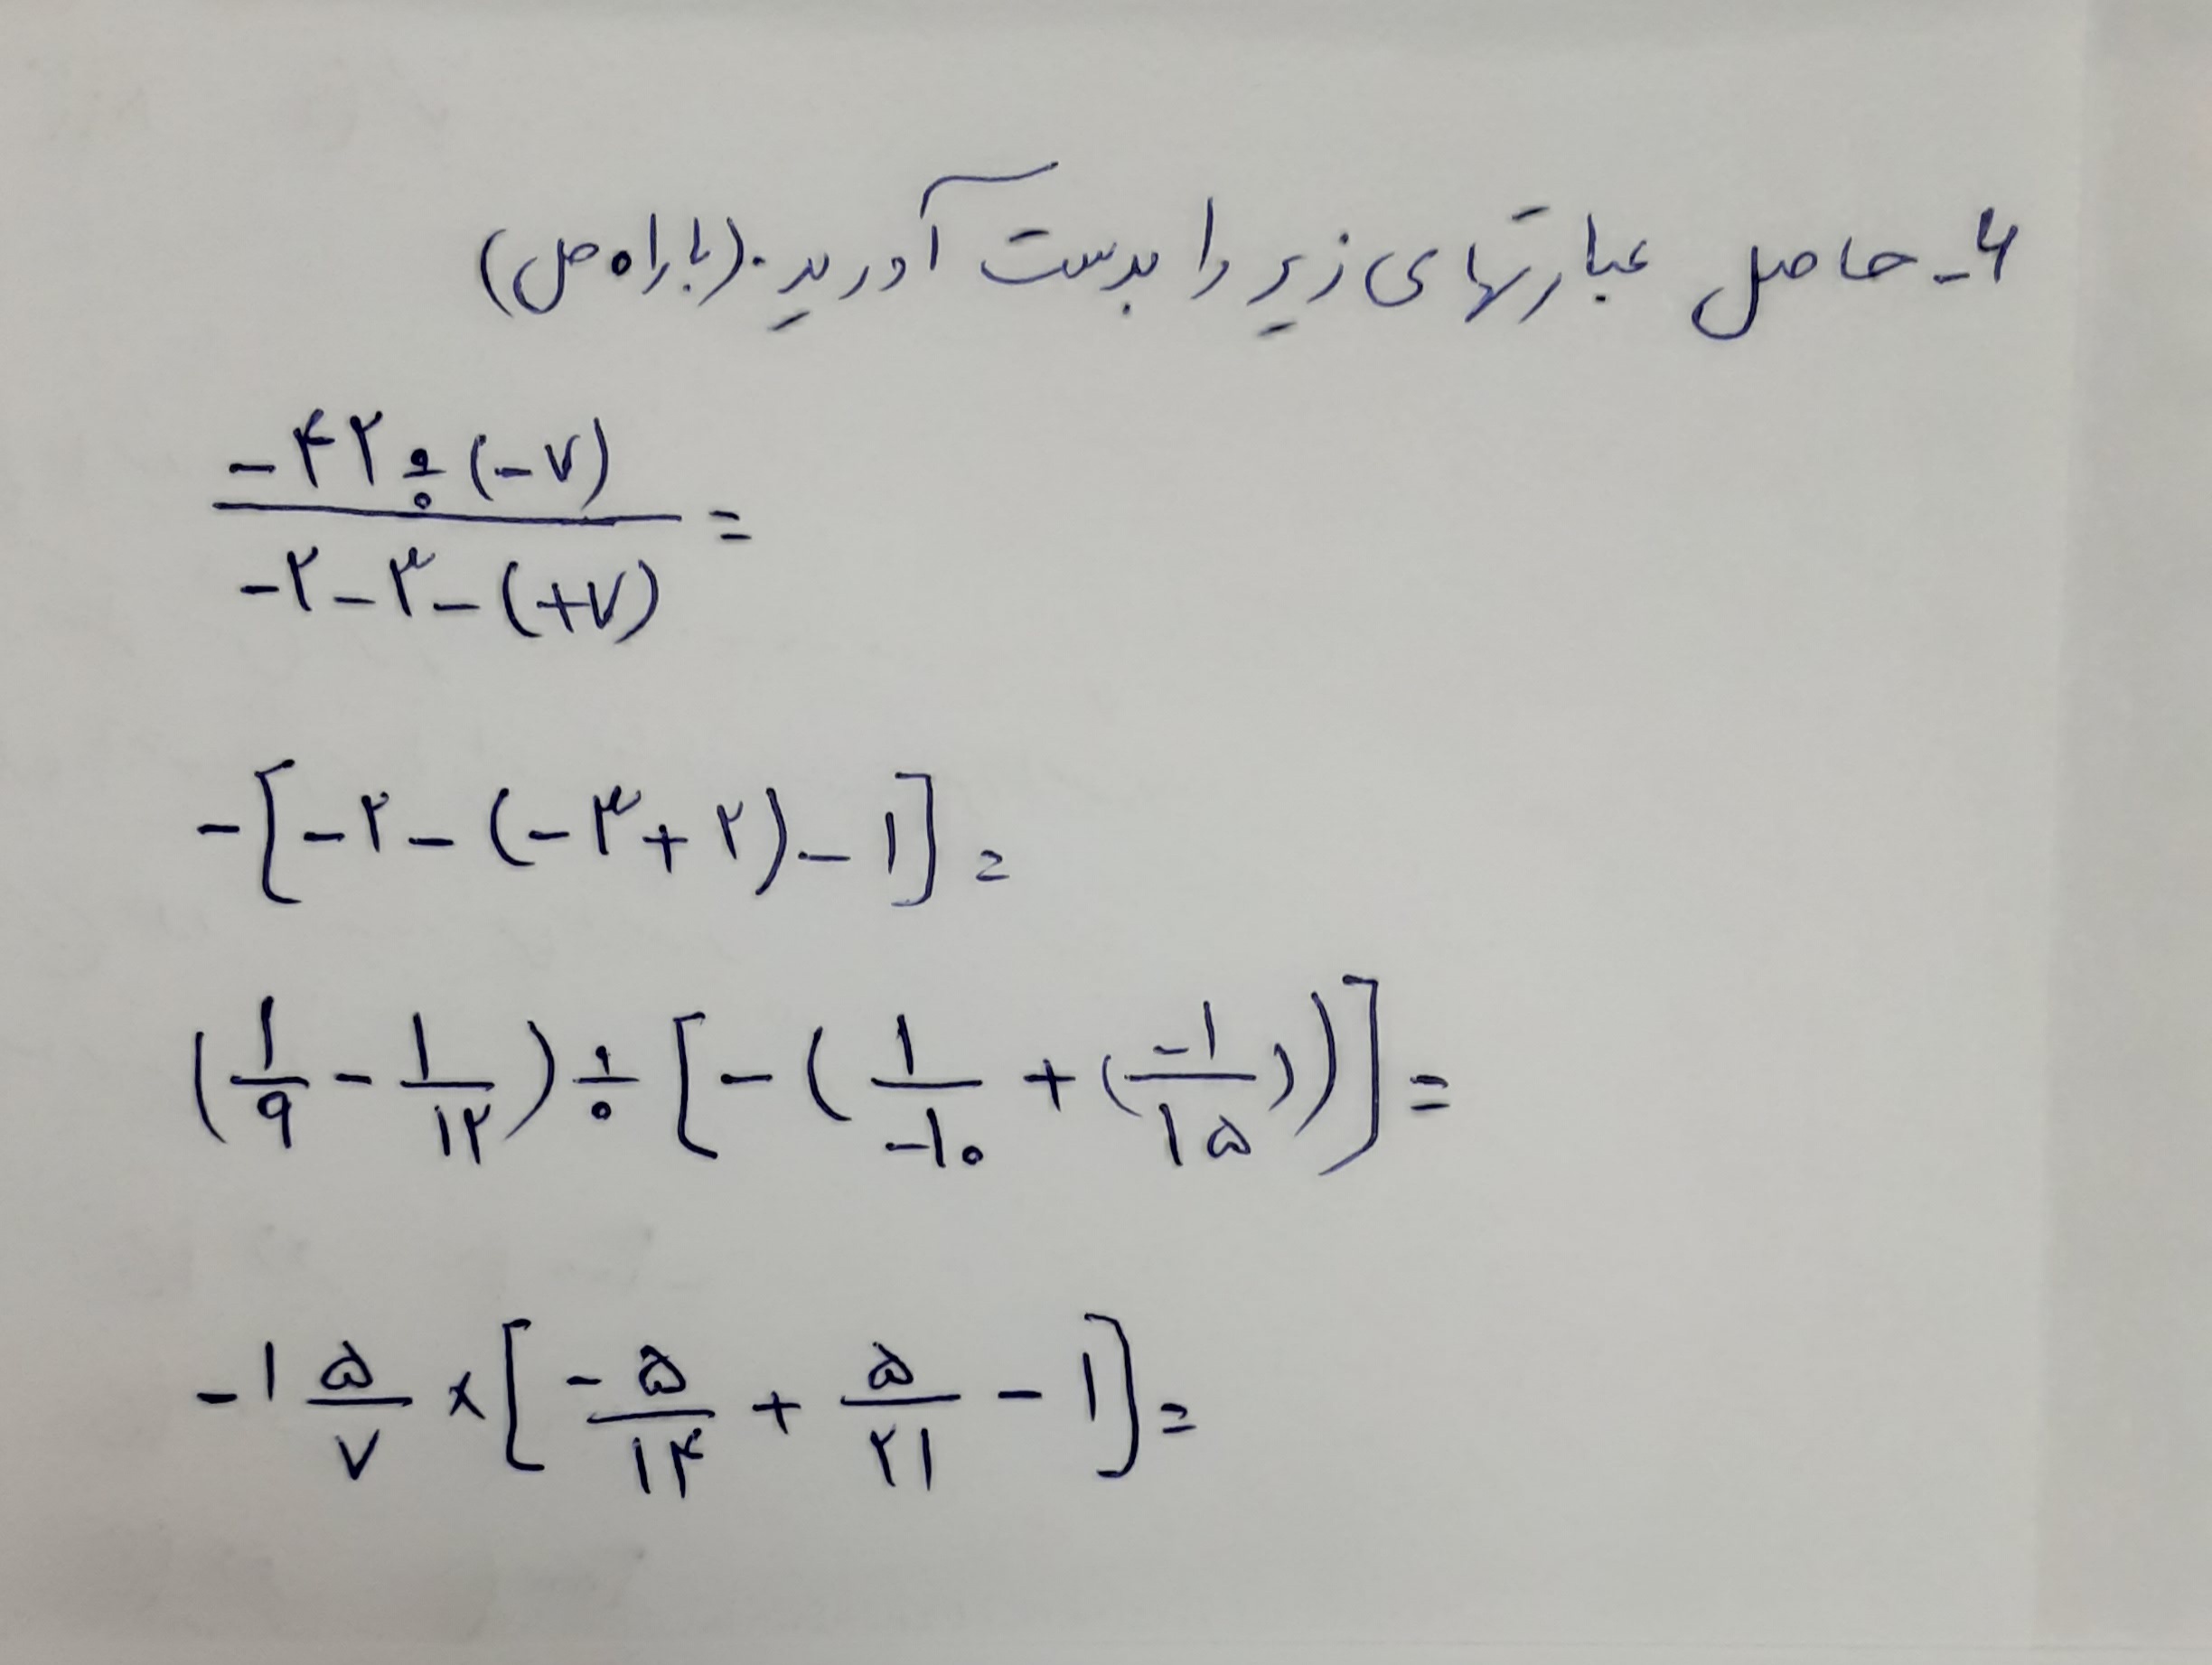 ۶- حاصل عبارتهای زیر را بدست آورید. (با راه حل)
-۴۲ ÷ (-۷)
-۲ - ۳ - (+۷) =
-[-۲ - (-۳ + ۲) - ۱] =
(۱/۹ - ۱/۱۲) ÷ [-(۱/-۱۰ + (-۱/۱۵))] =
-۱ ۵/۷ × [-۵/۱۴ + ۵/۲۱ - ۱] =